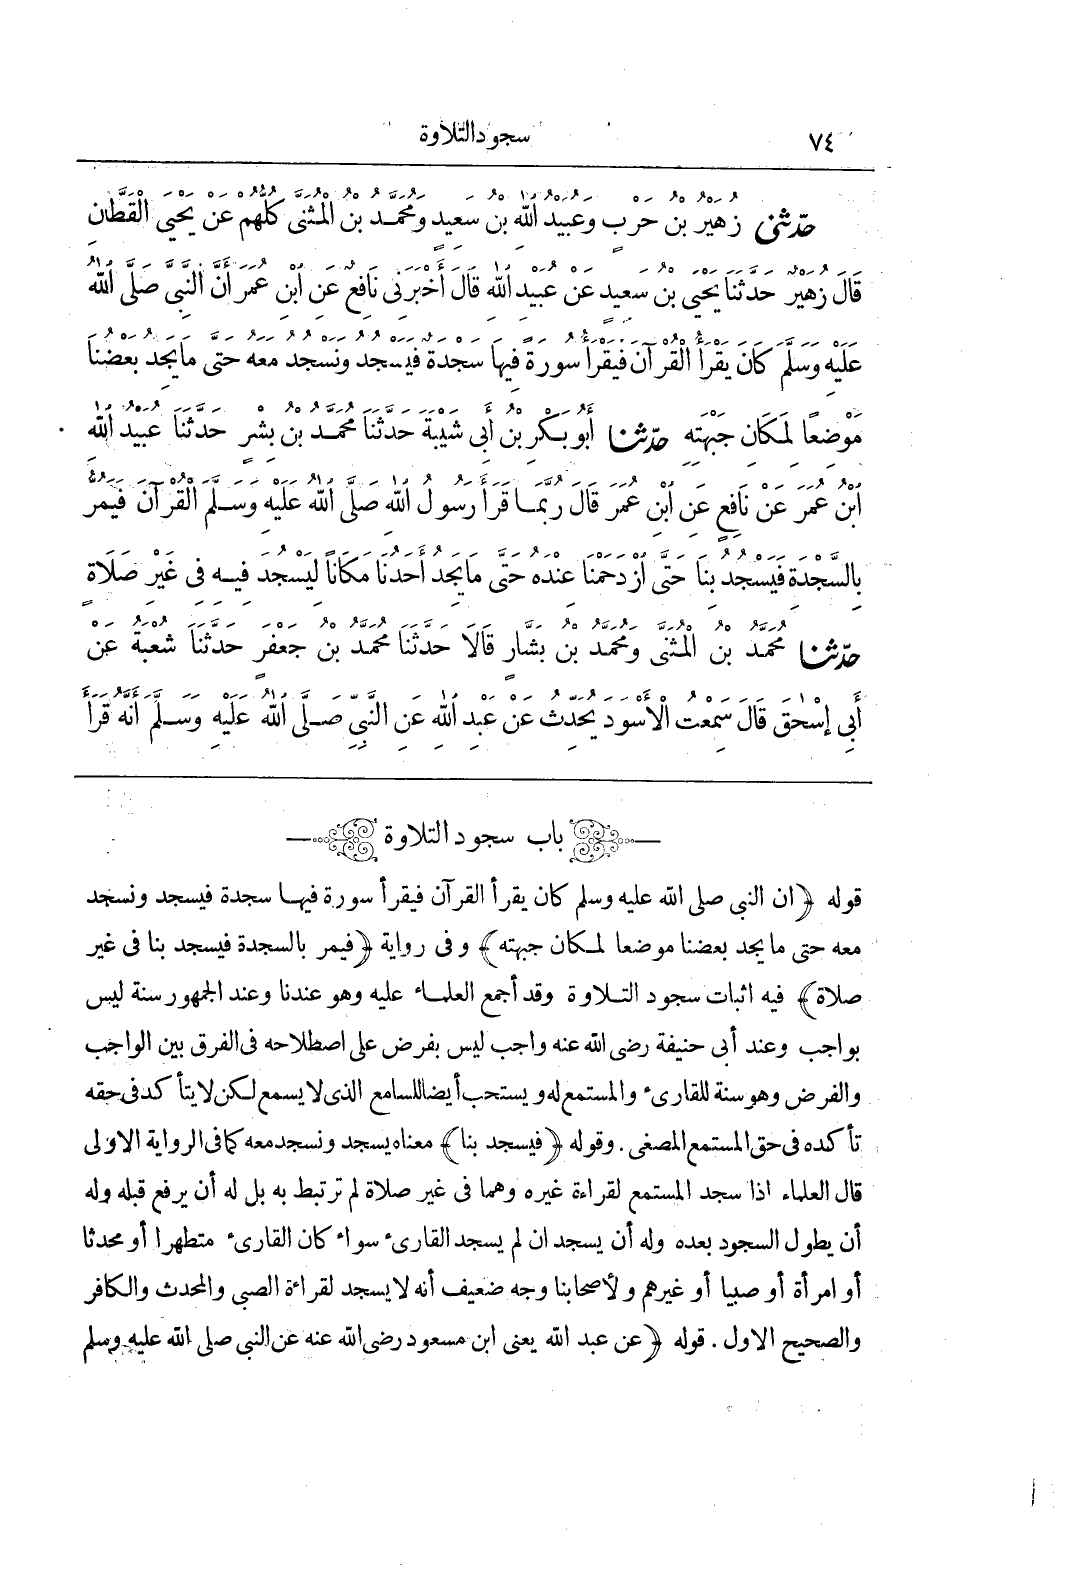 ٧٤
سجود التلاوة
حَدَّثَنِي زُهَيْرُ بْنُ حَرْبٍ وَعُبَيْدُ اللهِ بْنُ سَعِيدٍ وَمُحَمَّدُ بْنُ الْمُثَنَّى كُلُّهُمْ عَنْ يَحْيَى الْقَطَّانِ
قَالَ زُهَيْرٌ حَدَّثَنَا يَحْيَى بْنُ سَعِيدٍ عَنْ عُبَيْدِ اللهِ قَالَ أَخْبَرَنِي نَافِعٌ عَنِ ابْنِ عُمَرَ أَنَّ النَّبِيَّ صَلَّى اللهُ
عَلَيْهِ وَسَلَّمَ كَانَ يَقْرَأُ الْقُرْآنَ فَيَقْرَأُ سُورَةً فِيهَا سَجْدَةٌ فَيَسْجُدُ وَنَسْجُدُ مَعَهُ حَتَّى مَا يَجِدُ بَعْضُنَا
مَوْضِعًا لِمَكَانِ جَبْهَتِهِ حَدَّثَنَا أَبُو بَكْرِ بْنُ أَبِي شَيْبَةَ حَدَّثَنَا مُحَمَّدُ بْنُ بِشْرٍ حَدَّثَنَا عُبَيْدُ اللهِ
ابْنُ عُمَرَ عَنْ نَافِعٍ عَنِ ابْنِ عُمَرَ قَالَ رُبَّمَا قَرَأَ رَسُولُ اللهِ صَلَّى اللهُ عَلَيْهِ وَسَلَّمَ الْقُرْآنَ فَيَمُرُّ
بِالسَّجْدَةِ فَيَسْجُدُ بِنَا حَتَّى ازْدَحَمْنَا عِنْدَهُ حَتَّى مَا يَجِدُ أَحَدُنَا مَكَانًا لِيَسْجُدَ فِيهِ فِي غَيْرِ صَلَاةٍ
حَدَّثَنَا مُحَمَّدُ بْنُ الْمُثَنَّى وَمُحَمَّدُ بْنُ بَشَّارٍ قَالَا حَدَّثَنَا مُحَمَّدُ بْنُ جَعْفَرٍ حَدَّثَنَا شُعْبَةُ عَنْ
أَبِي إِسْحَقَ قَالَ سَمِعْتُ الْأَسْوَدَ يُحَدِّثُ عَنْ عَبْدِ اللهِ عَنِ النَّبِيِّ صَلَّى اللهُ عَلَيْهِ وَسَلَّمَ أَنَّهُ قَرَأَ
باب سجود التلاوة
قوله ﴿ ان النبى صلى الله عليه وسلم كان يقرأ القرآن فيقرأ سورة فيها سجدة فيسجد ونسجد
معه حتى ما يجد بعضنا موضعا لمكان جبهته ﴾ وفى رواية ﴿ فيمر بالسجدة فيسجد بنا فى غير
صلاة ﴾ فيه اثبات سجود التلاوة وقد أجمع العلماء عليه وهو عندنا وعند الجمهور سنة ليس
بواجب وعند أبى حنيفة رضى الله عنه واجب ليس بفرض على اصطلاحه فى الفرق بين الواجب
والفرض وهو سنة للقارىء والمستمع له ويستحب أيضا للسامع الذى لا يسمع لكن لا يتأكد فى حقه
تأكده فى حق المستمع المصغى . وقوله ﴿ فيسجد بنا ﴾ معناه يسجد ونسجد معه كما فى الرواية الاولى
قال العلماء اذا سجد المستمع لقراءة غيره وهما فى غير صلاة لم ترتبط به بل له أن يرفع قبله وله
أن يطول السجود بعده وله أن يسجد ان لم يسجد القارىء سواء كان القارىء متطهرا أو محدثا
أو امرأة أو صبيا أو غيرهم ولأصحابنا وجه ضعيف أنه لا يسجد لقراءة الصبى والمحدث والكافر
والصحيح الاول . قوله ﴿ عن عبد الله يعنى ابن مسعود رضى الله عنه عن النبى صلى الله عليه وسلم